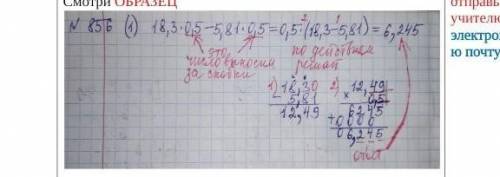 Смотри ОБРАЗЕЦ
N 856 (1) 18,3·0,5-5,81·0,5=0,5·(18,3-5,81)=6,245
2 1
это число выносим за скобки
по действиям решай
1) 18,30
- 5,81
12,49
2) 12,49
× 0,5
6245
+ 0000
06,245
ответ
отправь
учителю
электрон
ю почту